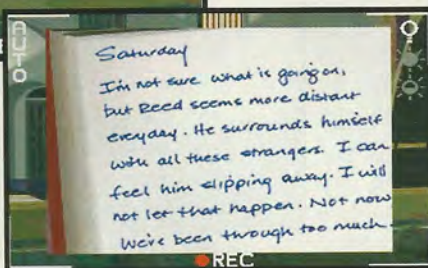 AUTO
Saturday
I'm not sure what is going on,
but Reed seems more distant
everyday. He surrounds himself
with all these strangers. I can
feel him slipping away. I will
not let that happen. Not now
we've been through too much.
REC